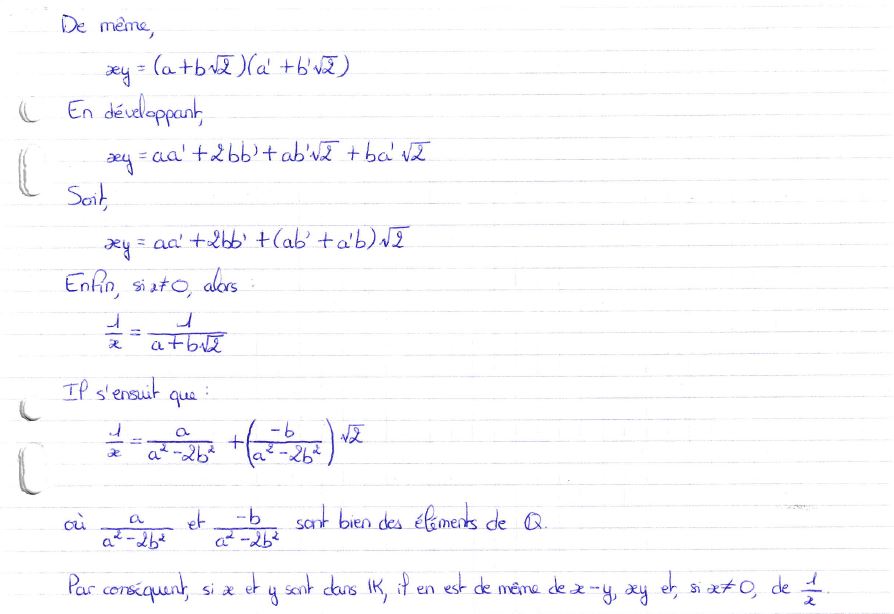 De même,
xy = (a+b√2)(a' + b'√2)
En développant,
xy = aa' + 2bb' + ab'√2 + ba'√2
Soit,
xy = aa' + 2bb' + (ab' + a'b)√2
Enfin, si x≠0, alors :
1/x = 1/(a+b√2)
Il s'ensuit que :
1/x = a/(a²-2b²) + (-b/(a²-2b²))√2
où a/(a²-2b²) et -b/(a²-2b²) sont bien des éléments de ℚ.
Par conséquent, si x et y sont dans 𝕂, il en est de même de x-y, xy et, si x≠0, de 1/x.